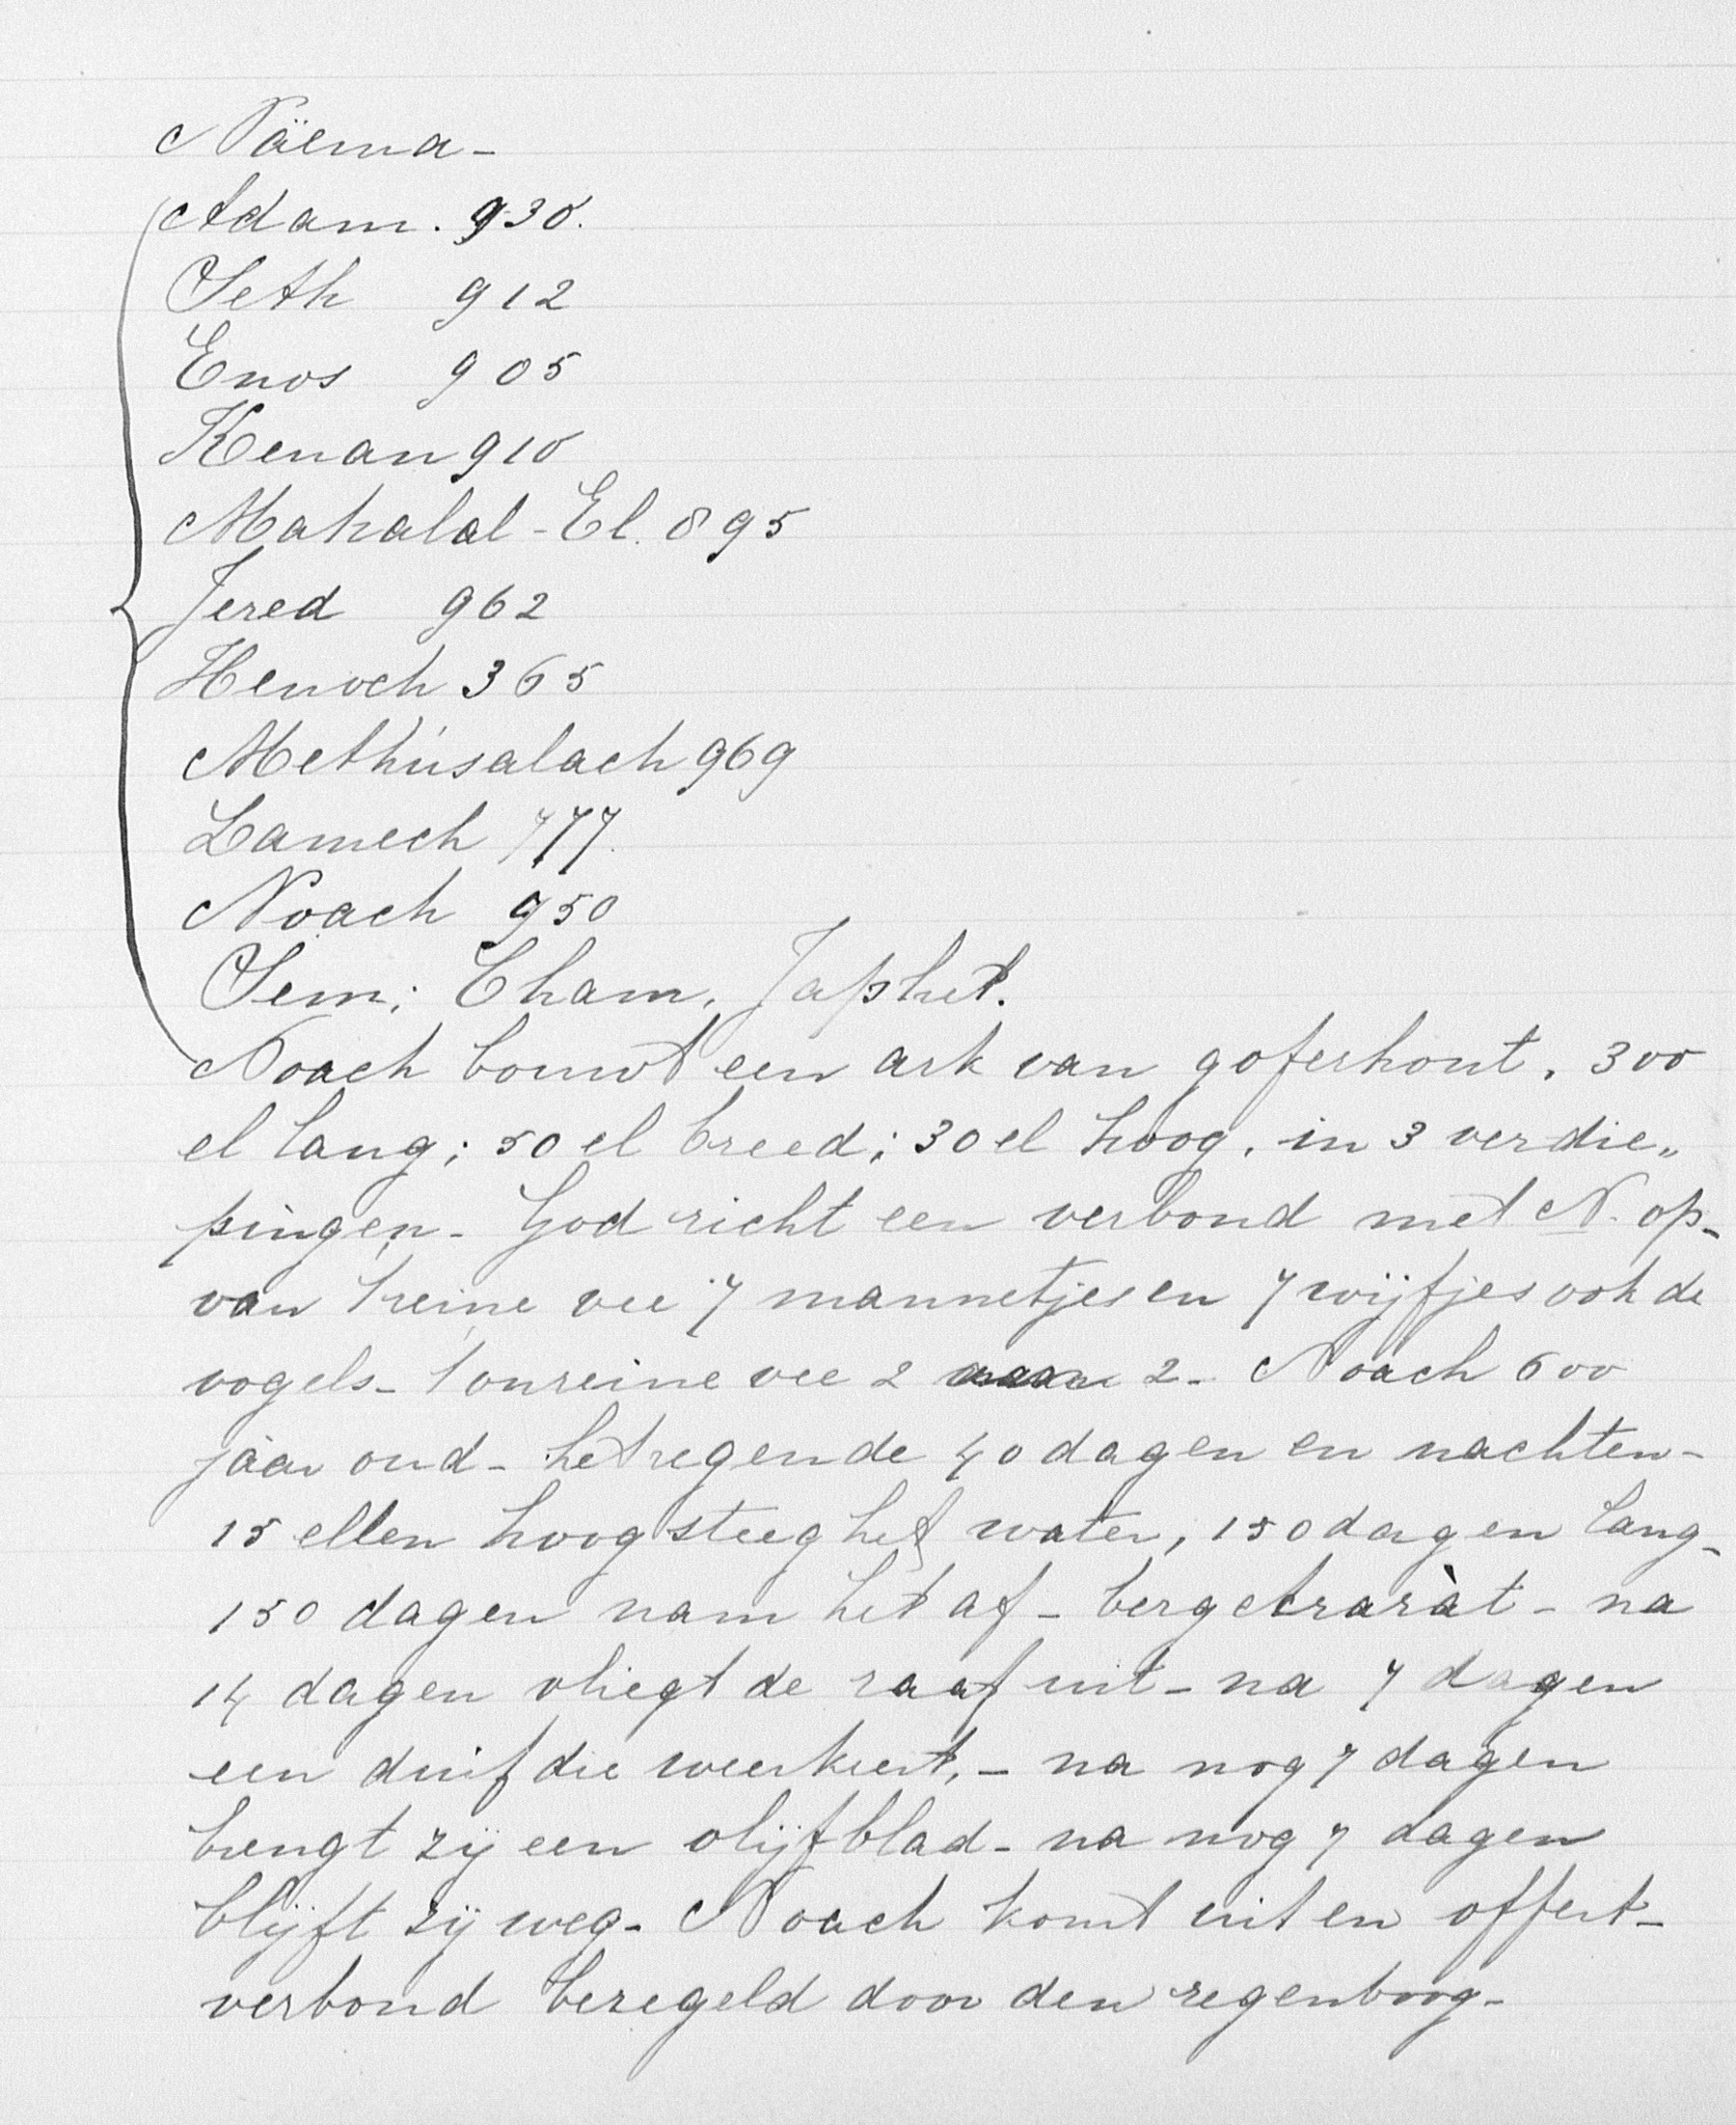 Näema-
Adam. 930.
Seth 912
Enos 905
Kenan 910
Mahalal-El. 895
Jered 962
Henoch 365
Methúsalach 969
Lamech 777.
Noach 950
Sem; Cham, Japhet.
Noach bouwt een ark van goferhout. 300
el lang; 50 el breed; 30 el hoog. in 3 verdie„
pingen- God richt een verbond met N. op-
van 't reine vee 7 mannetjes en 7 wijfjes ook de
vogels- 't onreine vee 2 2- Noach 600
jaar oud- het regende 40 dagen en nachten-
15 ellen hoog steeg het water, 150 dagen lang-
150 dagen nam het af- berg Araràt- na
14 dagen vliegt de raaf uit- na 7 dagen
een duif die weerkeert,- na nog 7 dagen
brengt zij een olijfblad- na nog 7 dagen
blijft zij weg- Noach komt uit en offert-
verbond bezegeld door den regenboog-